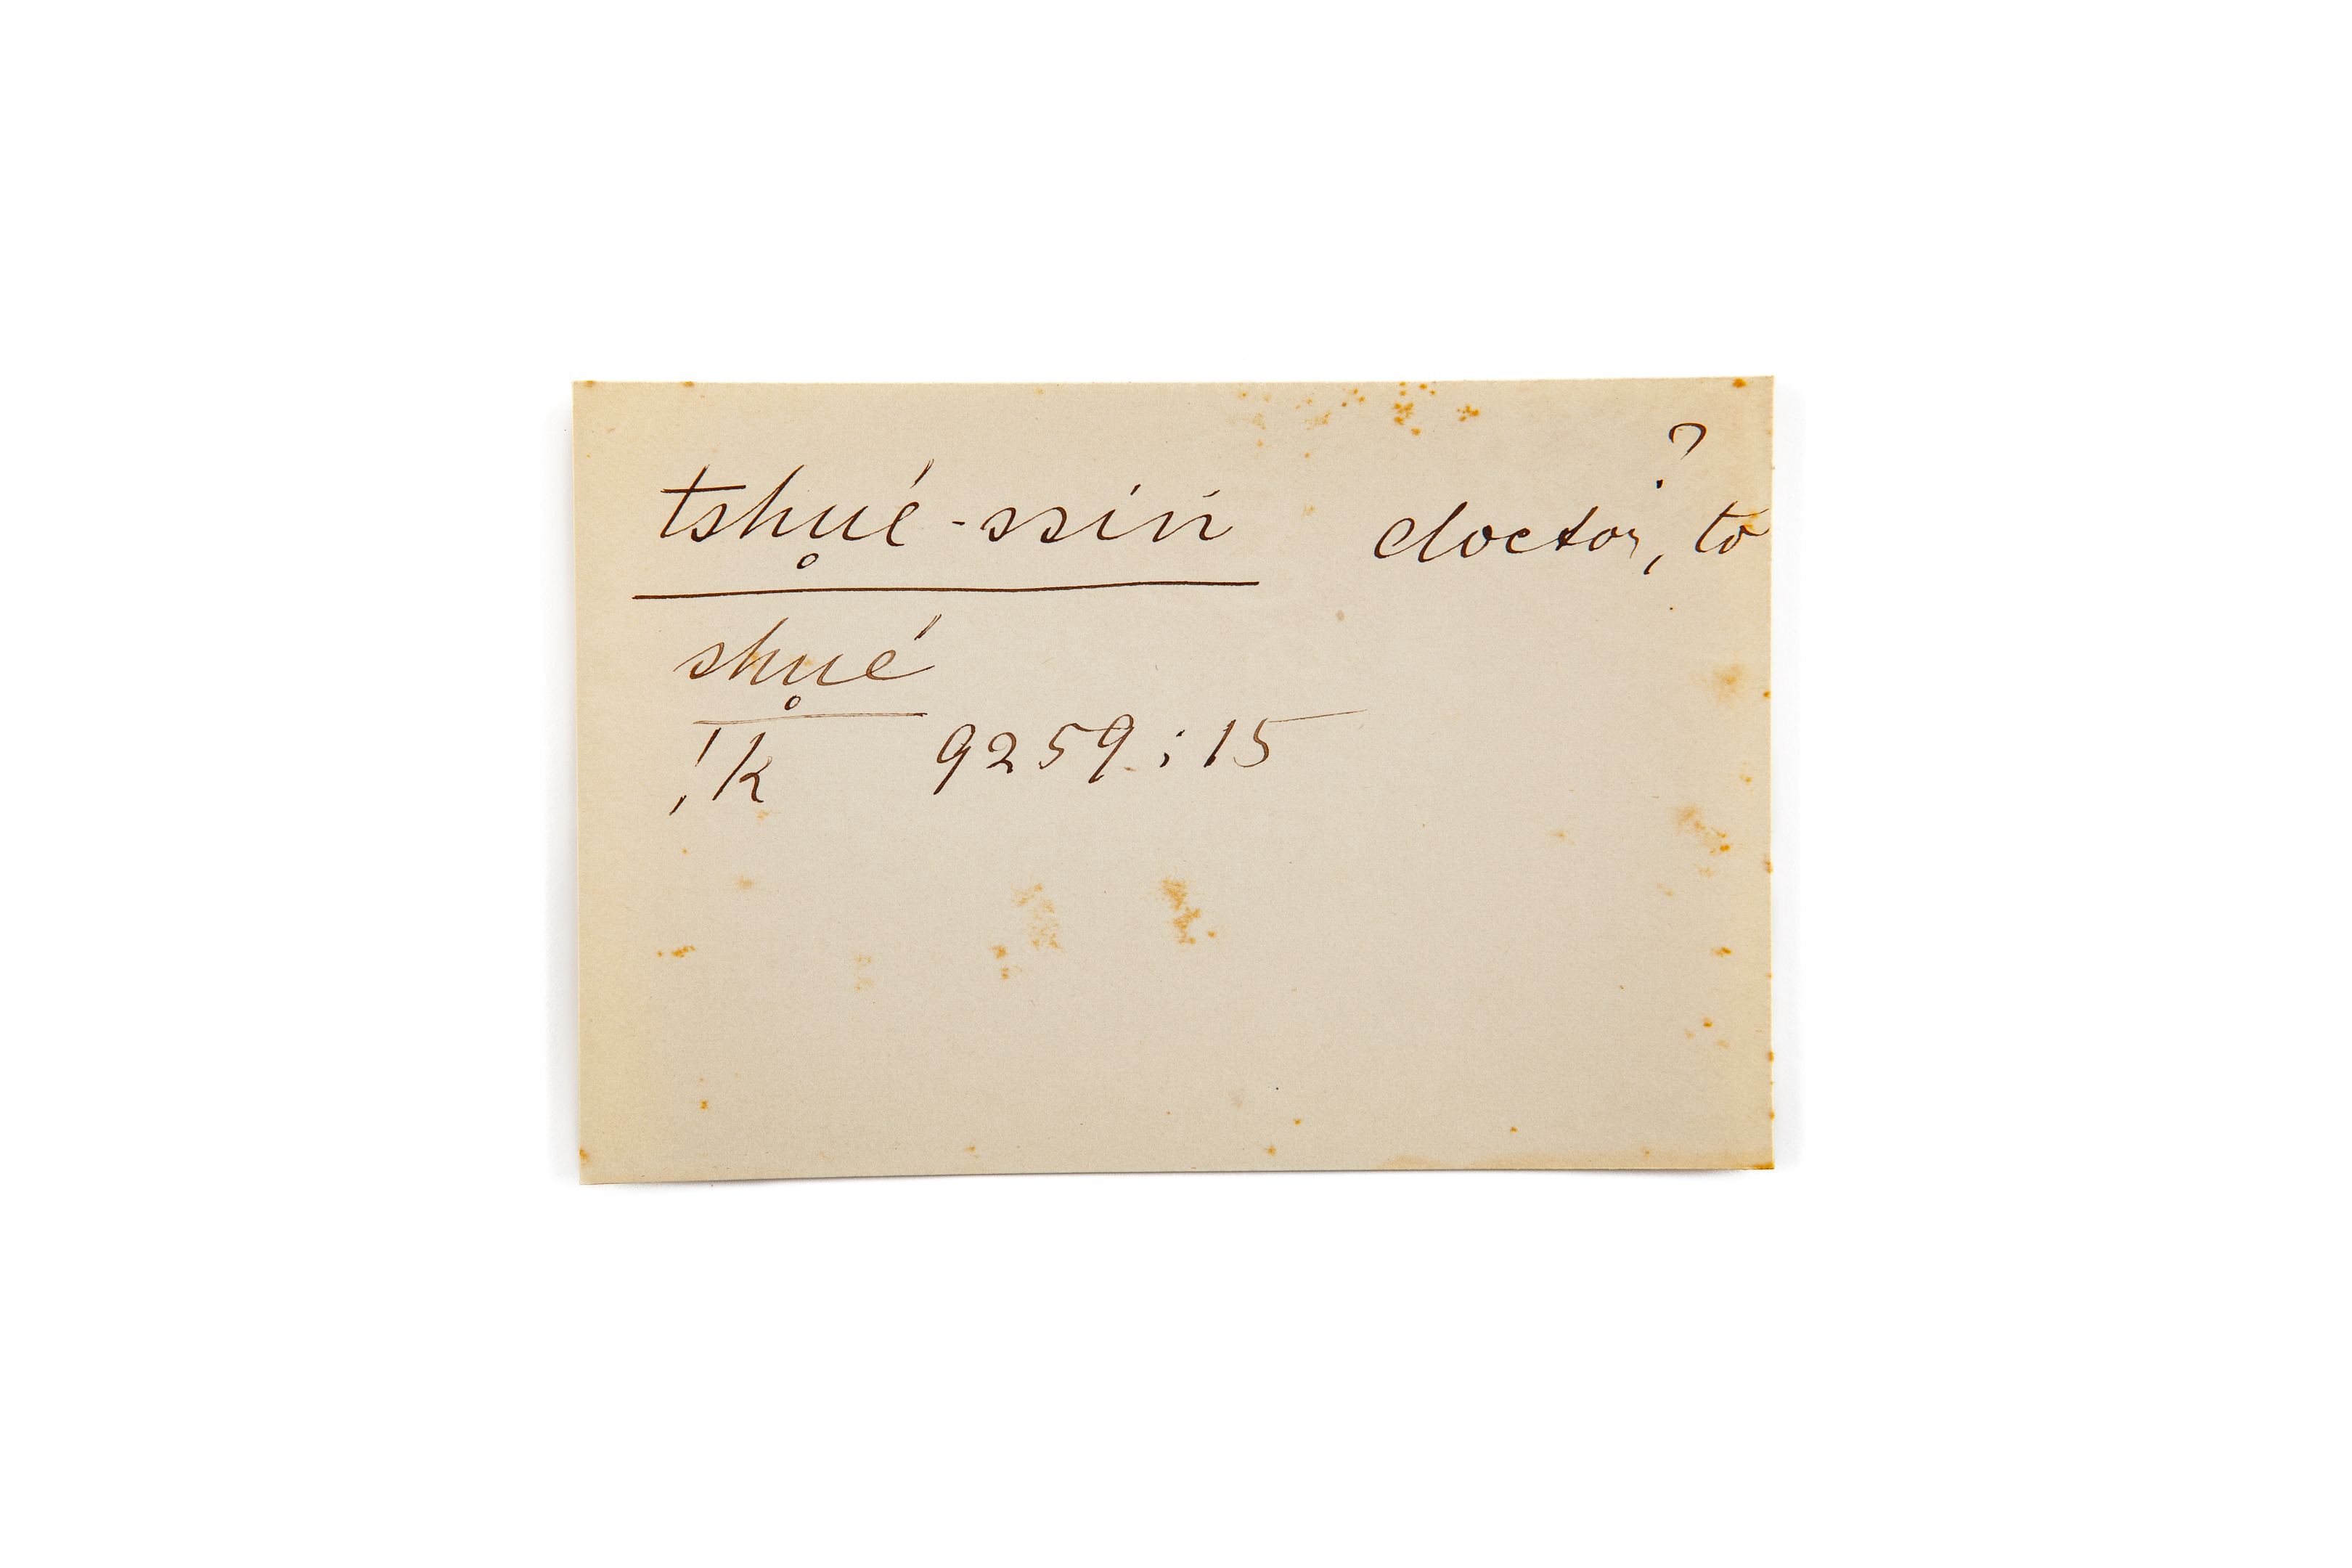 ?
tshu̥é-ssiṅ doctor, to
shu̥é
!k 9259:15